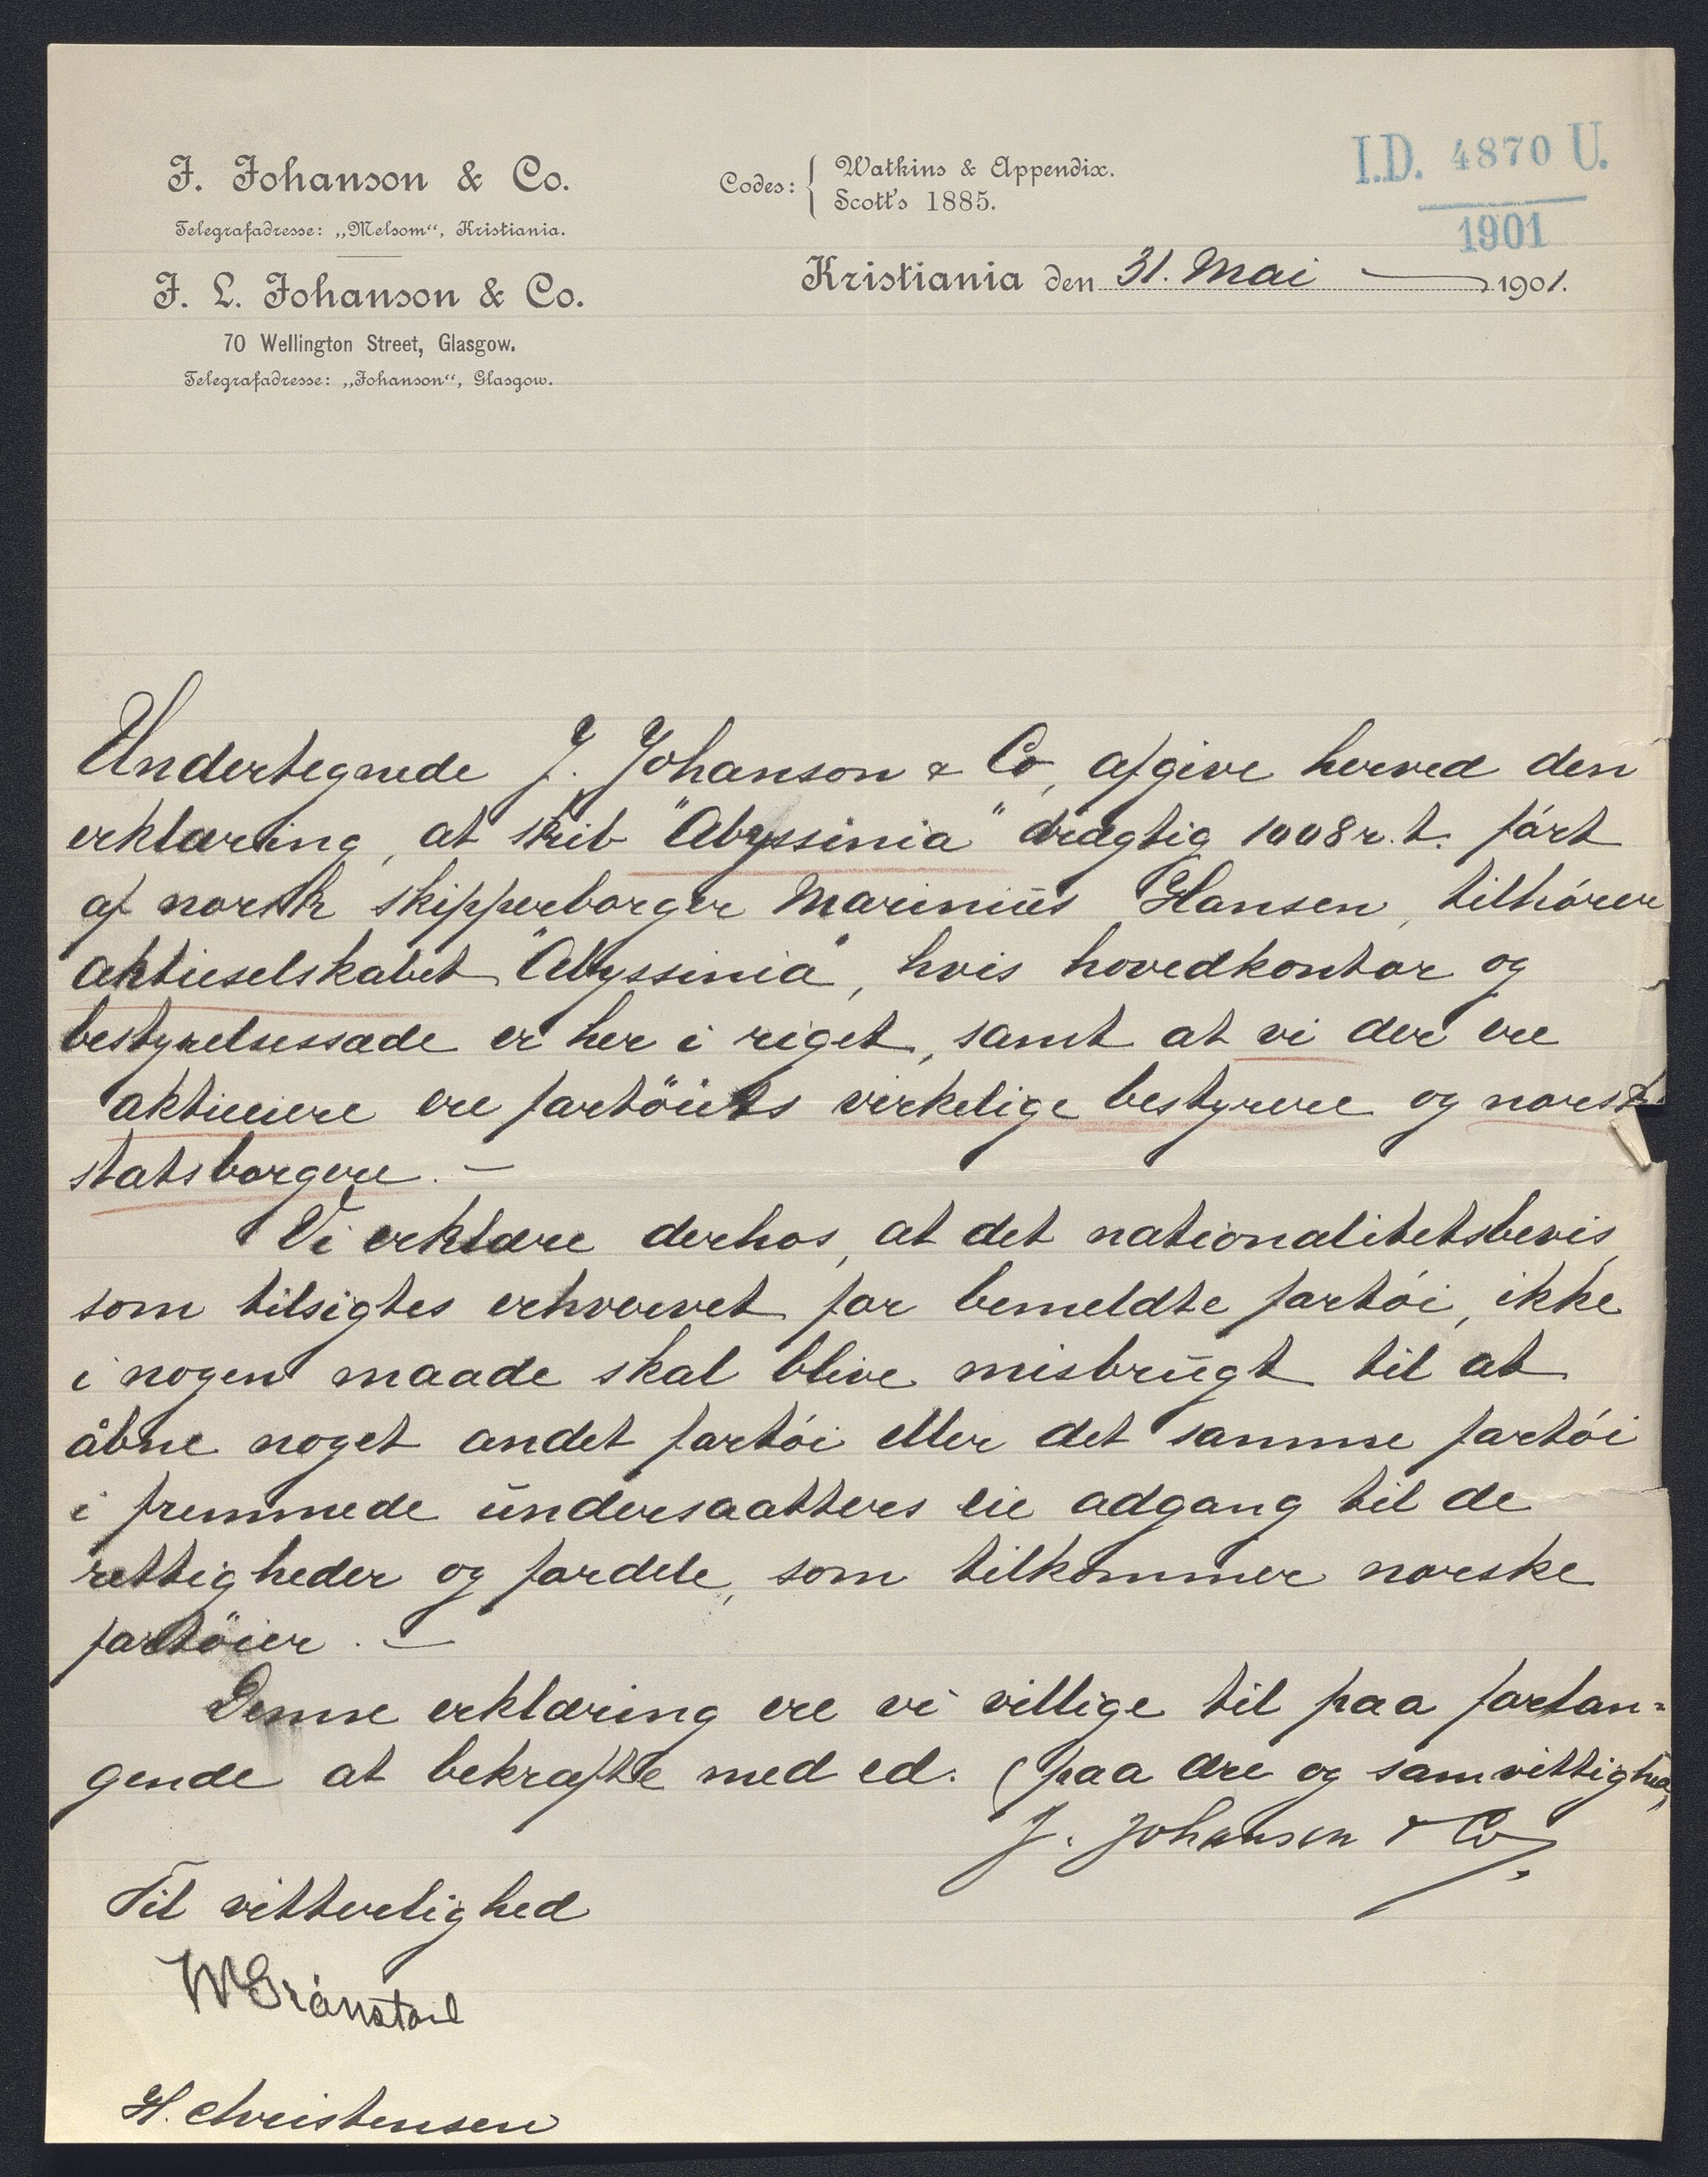 J. Johanson & Co.
Telegrafadresse: „Melsom“, Kristiania.
J. L. Johanson & Co.
70 Wellington Street, Glasgow.
Telegrafadresse: „Johanson“, Glasgow.
Codes: { Watkins & Appendix.
Scott's 1885.
I.D. 4870 U.
1901
Kristiania den 31. Mai 1901.
Undertegnede J. Johanson & Co, afgive herved den
erklæring, at skib "Abyssinia" drægtig 1008 r.t. ført
af norsk skipperborger Marinius Hansen, tilhører
aktieselskabet "Abyssinia", hvis hovedkontor og
bestyrelsessæde er her i riget, samt at vi der ere
aktieeiere ere fartöiets virkelige bestyrere og norske
statsborgere. –
Vi erklære derhos, at det nationalitetsbevis,
som tilsigtes erhvervet for bemeldte fartói, ikke
i nogen maade skal blive misbrugt til at
åbne noget andet fartói eller det samme fartói
i fremmede undersaatters eie adgang til de
rettigheder og fordele, som tilkommer norske
fartöier. –
Denne erklæring ere vi villige til paa forlan=
gende at bekræfte med ed. (paa ære og samvittighed)
J. Johanson & Co.
Til vitterlighed
H. Christensen